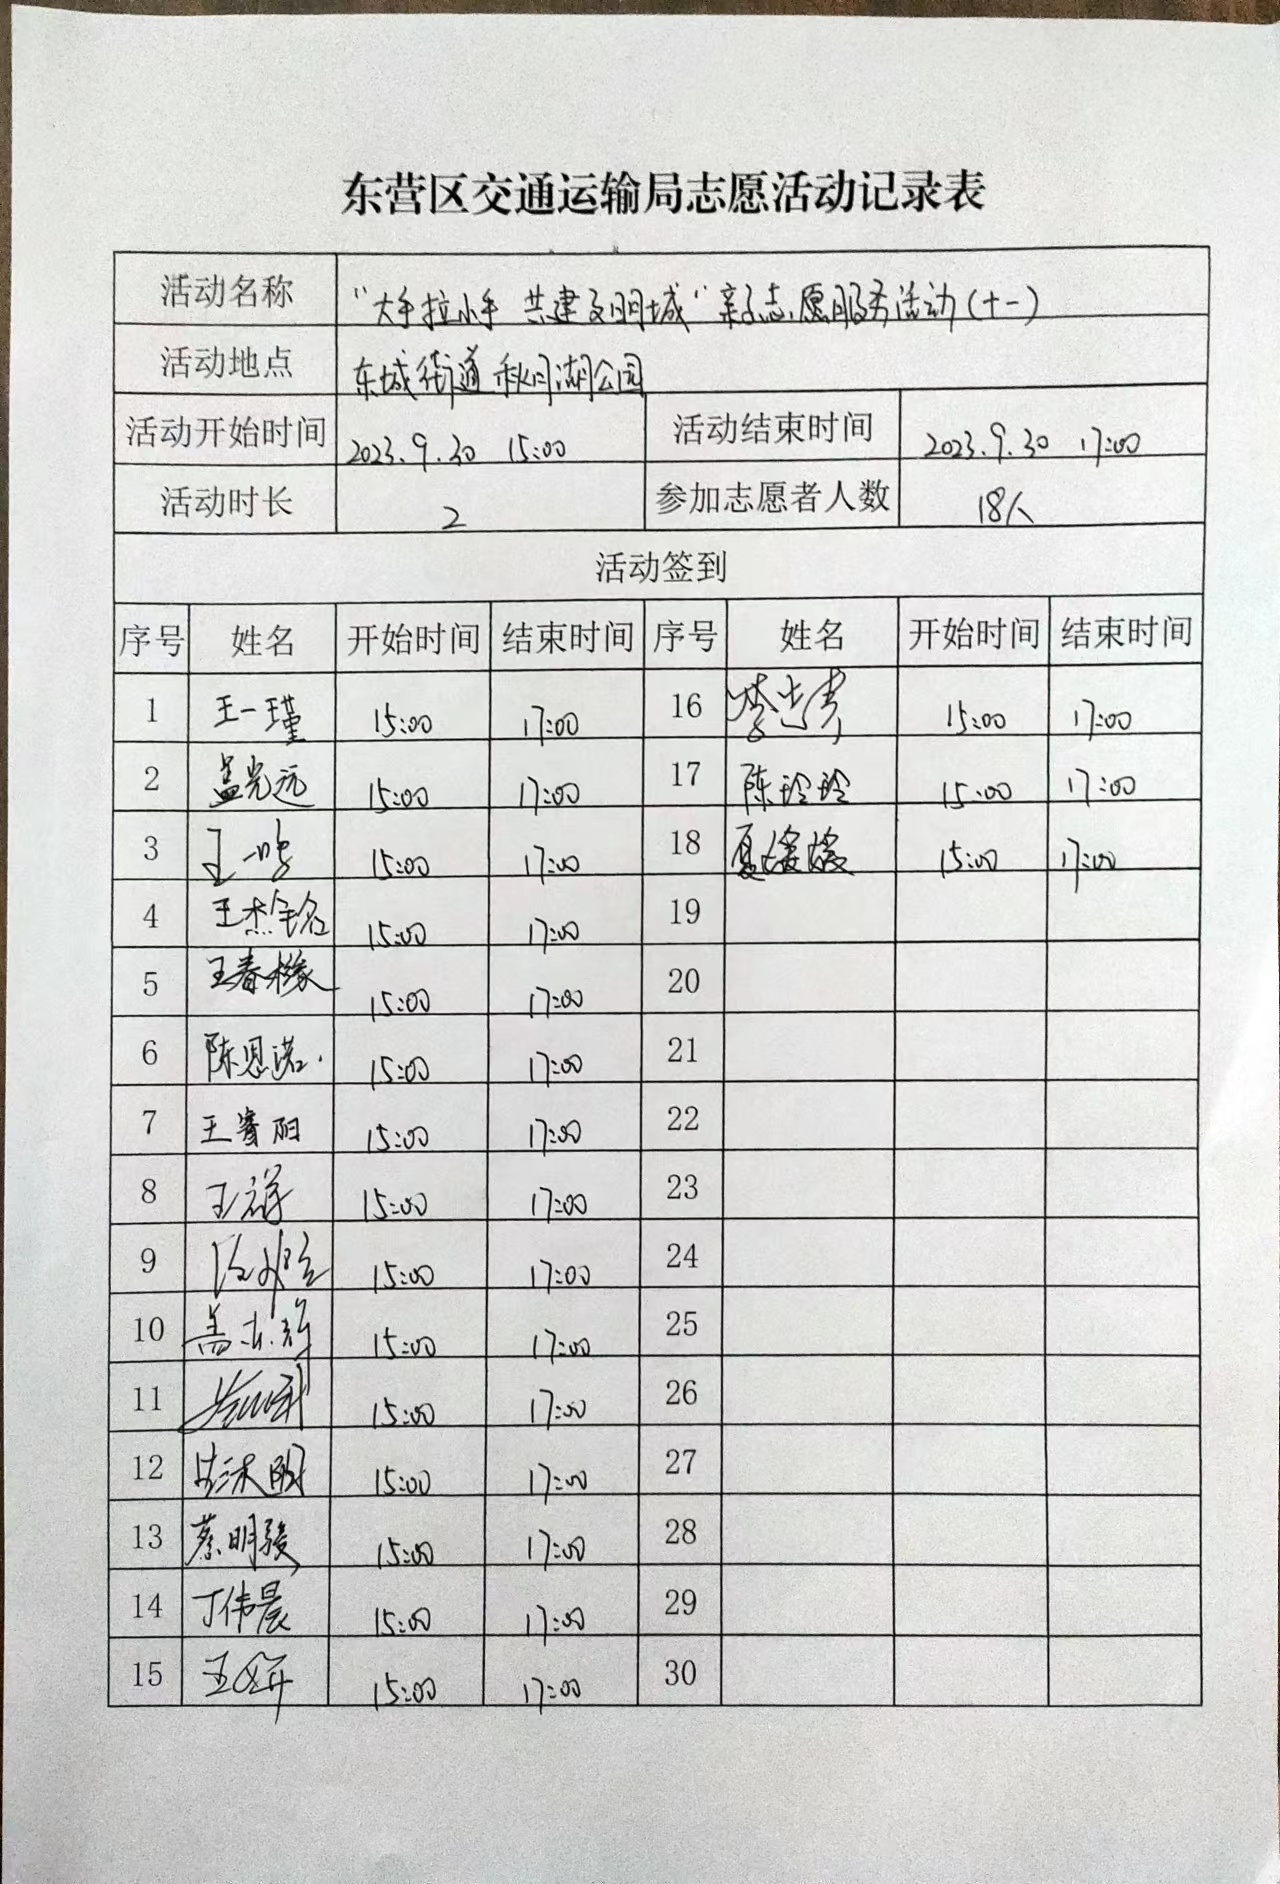 东营区交通运输局志愿活动记录表
活动名称 “大手拉小手 共建文明城”亲子志愿服务活动(十一)
活动地点 东城街道秋月湖公园
活动开始时间 2023.9.30 15:00 活动结束时间 2023.9.30 17:00
活动时长 2 参加志愿者人数 18人
活动签到
序号 姓名 开始时间 结束时间 序号 姓名 开始时间 结束时间
1 王一瑾 15:00 17:00 16 15:00 17:00
2 盖光远 15:00 17:00 17 陈玲玲 15:00 17:00
3 王一鸣 15:00 17:00 18 夏媛媛 15:00 17:00
4 王杰铭 15:00 17:00 19
5 王春橡 15:00 17:00 20
6 陈恩诺 15:00 17:00 21
7 王睿阳 15:00 17:00 22
8 王祥 15:00 17:00 23
9 15:00 17:00 24
10 15:00 17:00 25
11 15:00 17:00 26
12 15:00 17:00 27
13 蔡明骏 15:00 17:00 28
14 丁伟晨 15:00 17:00 29
15 15:00 17:00 30